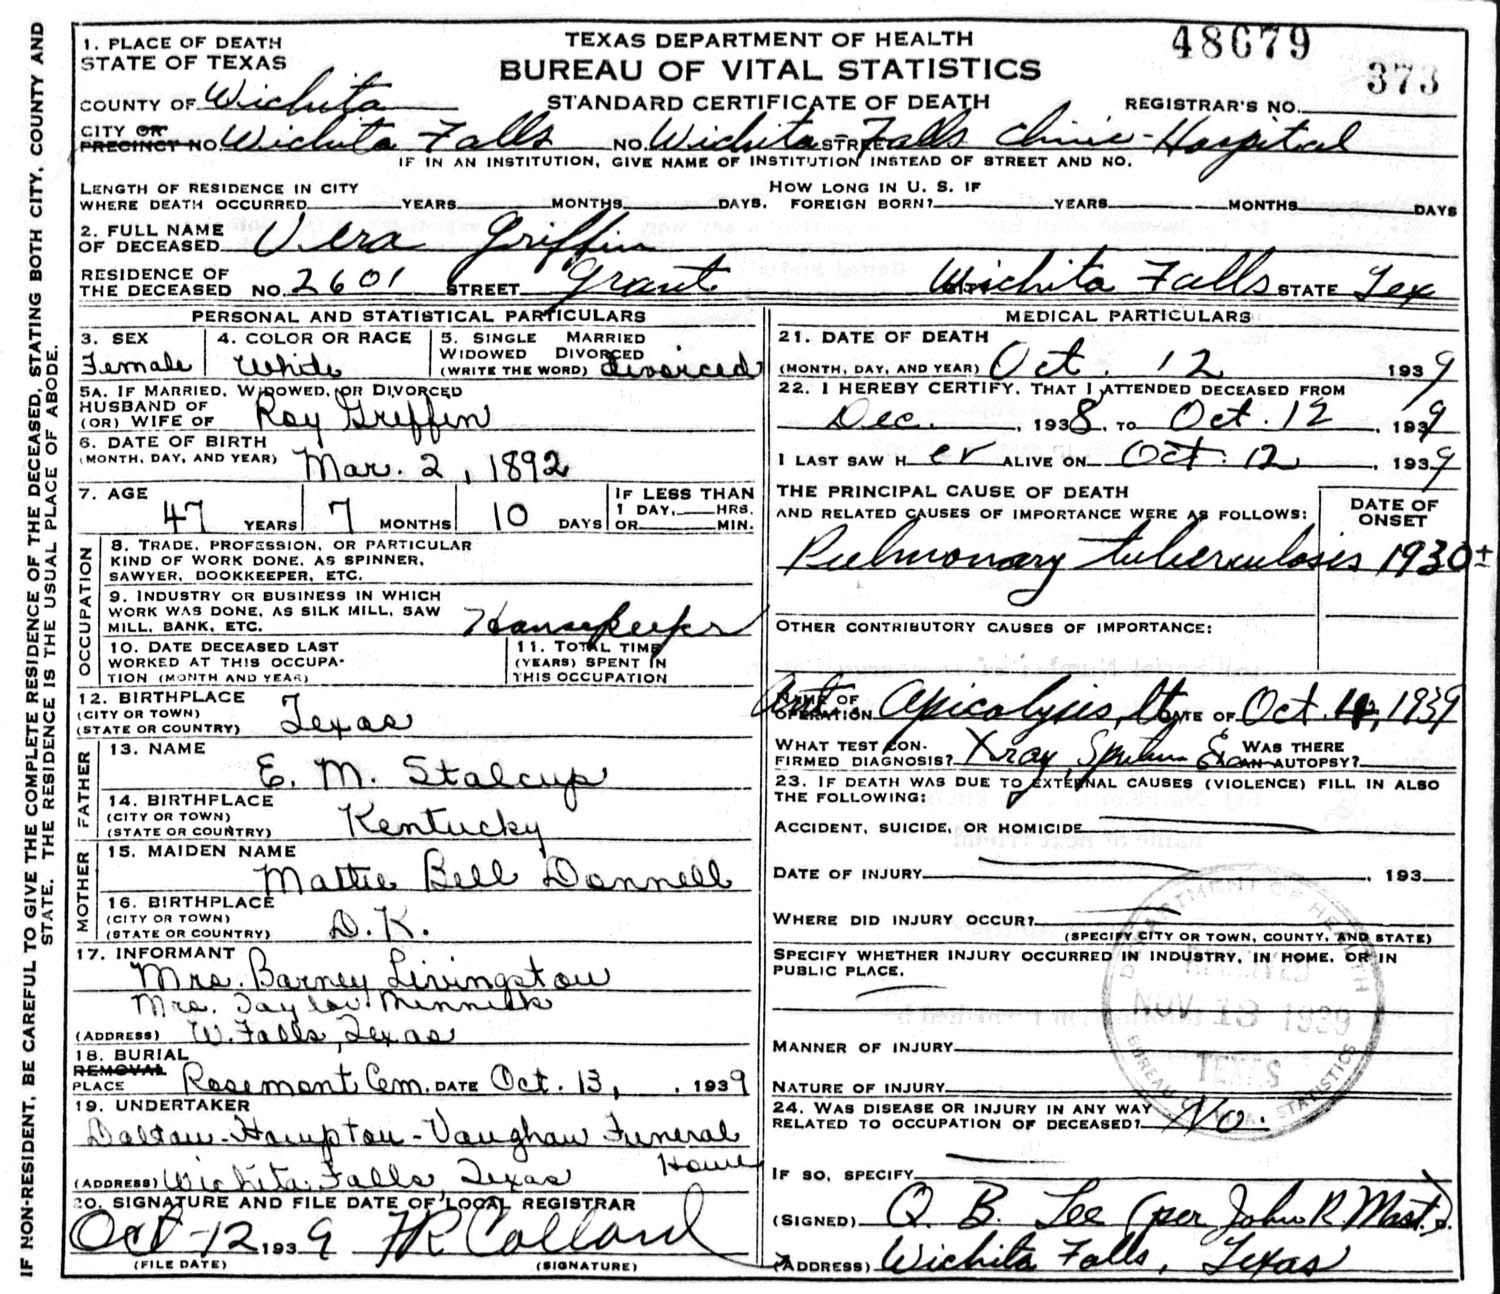 48679
373
TEXAS DEPARTMENT OF HEALTH
BUREAU OF VITAL STATISTICS
STANDARD CERTIFICATE OF DEATH
REGISTRAR'S NO.
IF NON-RESIDENT, BE CAREFUL TO GIVE THE COMPLETE RESIDENCE OF THE DECEASED, STATING BOTH CITY, COUNTY AND
STATE. THE RESIDENCE IS THE USUAL PLACE OF ABODE.
1. PLACE OF DEATH
STATE OF TEXAS
COUNTY OF Wichita
CITY OR
PRECINCT NO. Wichita Falls NO. Wichita Falls Clinic-Hospital STREET
IF IN AN INSTITUTION, GIVE NAME OF INSTITUTION INSTEAD OF STREET AND NO.
LENGTH OF RESIDENCE IN CITY
WHERE DEATH OCCURRED YEARS MONTHS DAYS.
HOW LONG IN U. S. IF
FOREIGN BORN? YEARS MONTHS DAYS
2. FULL NAME
OF DECEASED Vera Griffin
RESIDENCE OF
THE DECEASED NO. 2601 STREET Grant Wichita Falls STATE Tex
PERSONAL AND STATISTICAL PARTICULARS
3. SEX
Female
4. COLOR OR RACE
White
5. SINGLE MARRIED
WIDOWED DIVORCED
(WRITE THE WORD) Divorced
5A. IF MARRIED, WIDOWED, OR DIVORCED
HUSBAND OF
(OR) WIFE OF Roy Griffin
6. DATE OF BIRTH
(MONTH, DAY, AND YEAR) Mar. 2, 1892
7. AGE
47 YEARS 7 MONTHS 10 DAYS
IF LESS THAN
1 DAY, HRS.
OR MIN.
OCCUPATION
8. TRADE, PROFESSION, OR PARTICULAR
KIND OF WORK DONE, AS SPINNER,
SAWYER, BOOKKEEPER, ETC.
9. INDUSTRY OR BUSINESS IN WHICH
WORK WAS DONE, AS SILK MILL, SAW
MILL, BANK, ETC. Housekeeper
10. DATE DECEASED LAST
WORKED AT THIS OCCUPA-
TION (MONTH AND YEAR)
11. TOTAL TIME
(YEARS) SPENT IN
THIS OCCUPATION
12. BIRTHPLACE
(CITY OR TOWN)
(STATE OR COUNTRY) Texas
FATHER
13. NAME
E. M. Stalcup
14. BIRTHPLACE
(CITY OR TOWN)
(STATE OR COUNTRY) Kentucky
MOTHER
15. MAIDEN NAME
Mattie Bell Donnell
16. BIRTHPLACE
(CITY OR TOWN)
(STATE OR COUNTRY) D.K.
17. INFORMANT
Mrs. Barney Livingston
Mrs. Taylor Minnick
(ADDRESS) W. Falls, Texas
18. BURIAL
REMOVAL
PLACE Rosemont Cem. DATE Oct. 13, 1939
19. UNDERTAKER
Hampton-Vaughan Funeral
Home
(ADDRESS) Wichita Falls, Texas
20. SIGNATURE AND FILE DATE OF LOCAL REGISTRAR
Oct-12 1939
(FILE DATE) (SIGNATURE)
MEDICAL PARTICULARS
21. DATE OF DEATH
(MONTH, DAY, AND YEAR) Oct. 12 1939
22. I HEREBY CERTIFY, THAT I ATTENDED DECEASED FROM
Dec. , 1938, TO Oct. 12 , 1939
I LAST SAW H er ALIVE ON Oct. 12 , 1939
THE PRINCIPAL CAUSE OF DEATH
AND RELATED CAUSES OF IMPORTANCE WERE AS FOLLOWS:
DATE OF
ONSET
Pulmonary tuberculosis 1930±
OTHER CONTRIBUTORY CAUSES OF IMPORTANCE:
NAME OF
OPERATION Ant. Apicolysis, lt DATE OF Oct. 4, 1939
WHAT TEST CON-
FIRMED DIAGNOSIS? Xray, Sputum Ex
WAS THERE
AN AUTOPSY?
23. IF DEATH WAS DUE TO EXTERNAL CAUSES (VIOLENCE) FILL IN ALSO
THE FOLLOWING:
ACCIDENT, SUICIDE, OR HOMICIDE
DATE OF INJURY , 193
WHERE DID INJURY OCCUR?
(SPECIFY CITY OR TOWN, COUNTY, AND STATE)
SPECIFY WHETHER INJURY OCCURRED IN INDUSTRY, IN HOME, OR IN
PUBLIC PLACE.
MANNER OF INJURY
NATURE OF INJURY
24. WAS DISEASE OR INJURY IN ANY WAY
RELATED TO OCCUPATION OF DECEASED? No.
IF SO, SPECIFY
(SIGNED) Q. B. Lee (per John R Mast.)
(ADDRESS) Wichita Falls, Texas
DEPARTMENT OF HEALTH
RECEIVED
NOV 13 1939
TEXAS
BUREAU OF VITAL STATISTICS